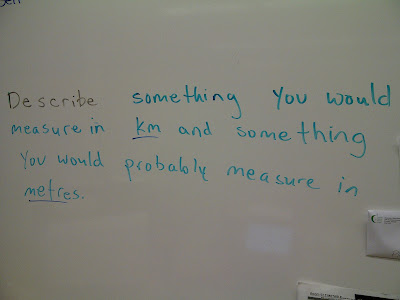 Describe something You would
measure in km and something
You would probably measure in
metres.